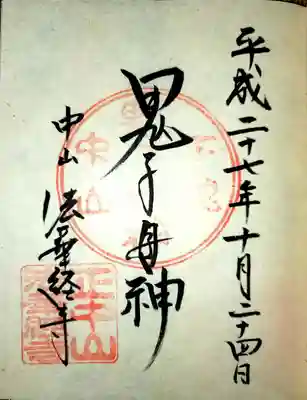 平成二十七年十月二十四日
鬼子母神
中山
法華経寺